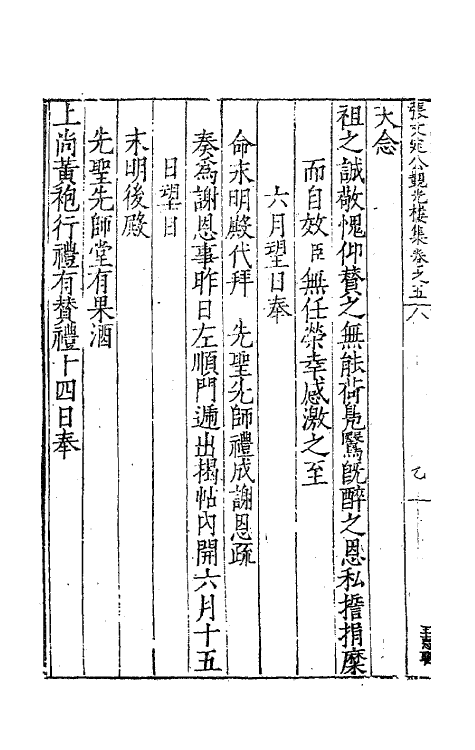 張文定公覲光樓集卷之五 八
大念
祖之誠敬愧仰賛之無能荷鳧鷖旣醉之恩私擔捐糜
而自效臣無任榮幸感激之至
六月望日奉
命末明殿代拜 先聖先師禮成謝恩疏
奏爲謝恩事昨日左順門遞出揭帖內開六月十五
日望日
末明後殿
先聖先師堂有果酒
上尚黃袍行禮有賛禮十四日奉